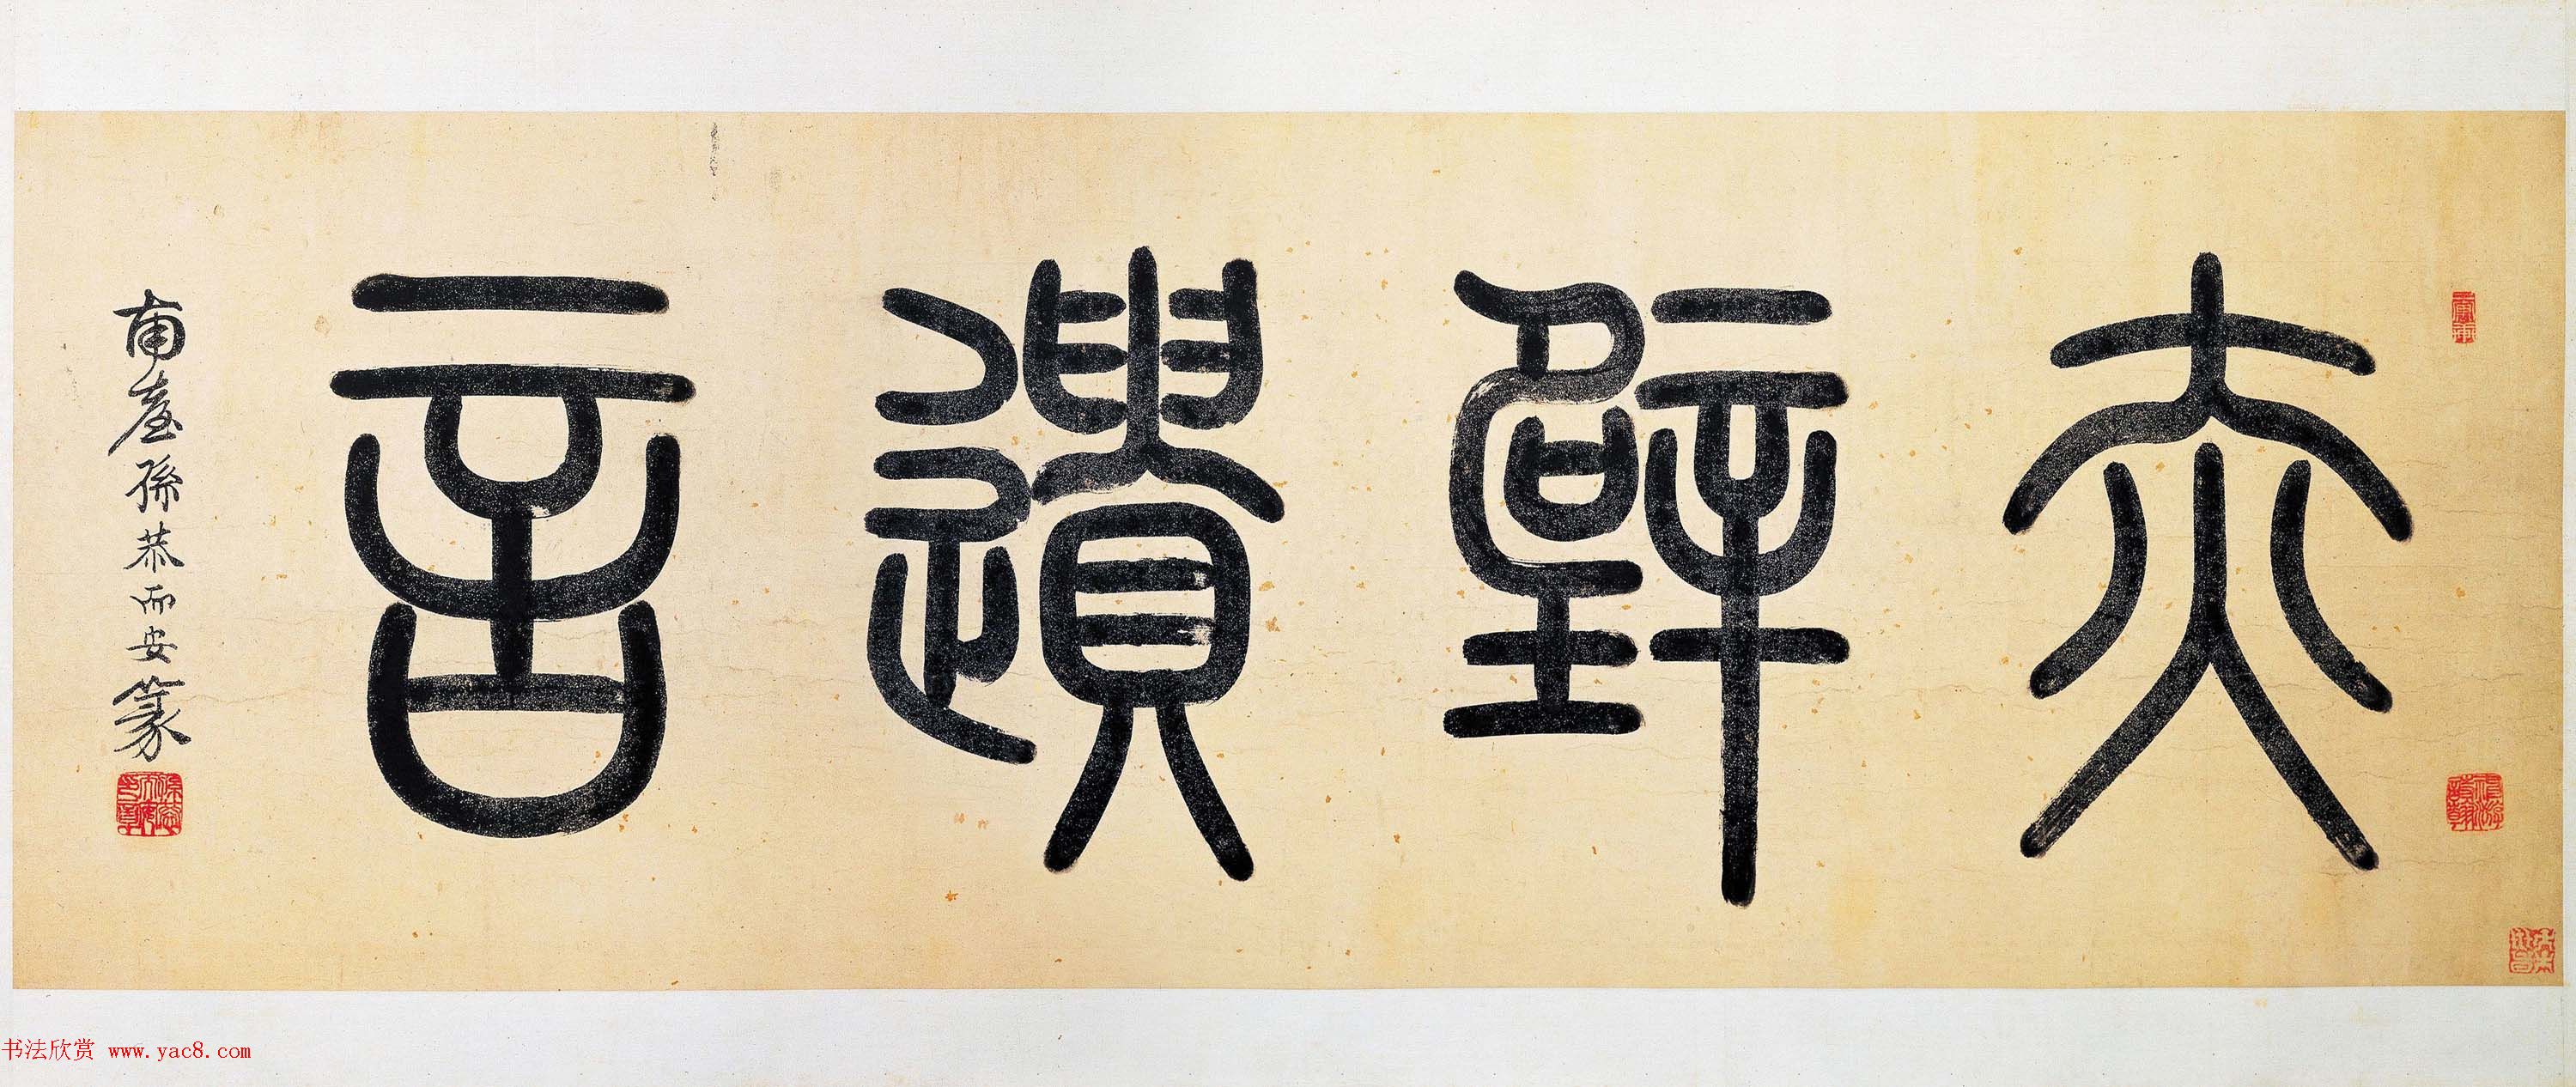 赤壁遺音
南臺孫恭而安篆
书法欣赏 www.yac8.com